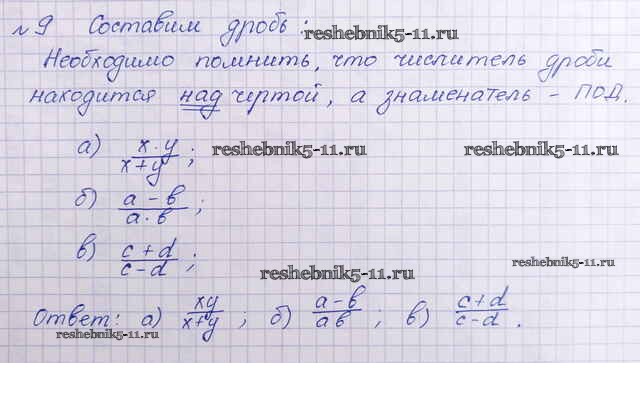 №9 Составим дробь:
reshebnik5-11.ru
Необходимо помнить, что числитель дроби
находится над чертой, а знаменатель - под.
а) x·y / x+y ;
reshebnik5-11.ru
reshebnik5-11.ru
б) a - b / a·b ;
в) c + d / c - d ;
reshebnik5-11.ru
reshebnik5-11.ru
Ответ: а) xy / x+y ; б) a-b / ab ; в) c+d / c-d .
reshebnik5-11.ru